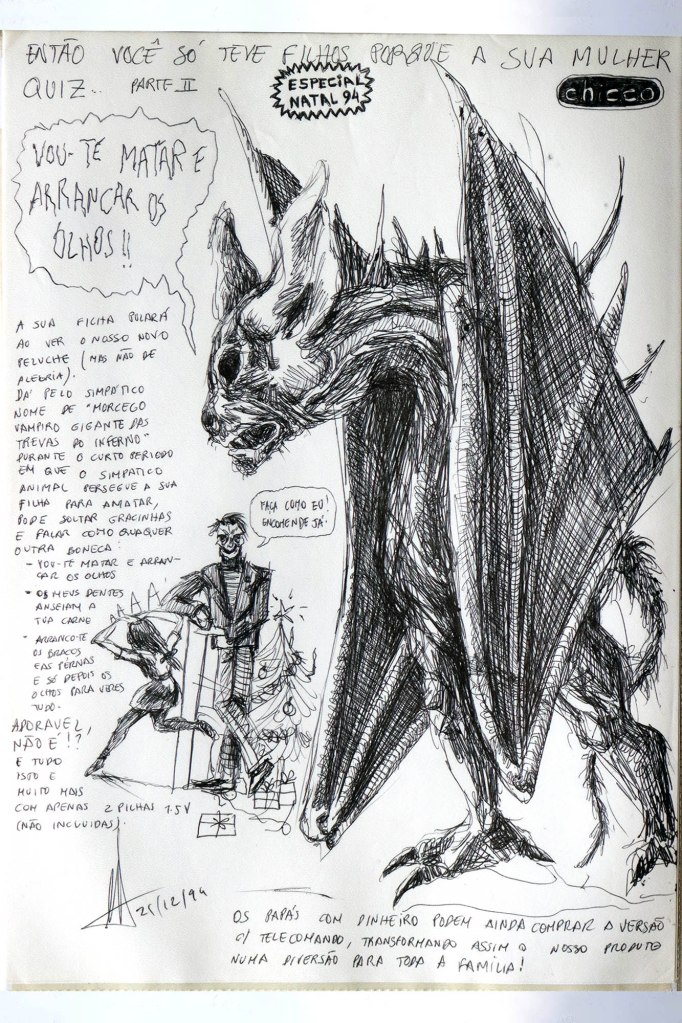 ENTÃO VOCÊ SÓ TEVE FILHOS PORQUE A SUA MULHER
QUIZ.. PARTE II
ESPECIAL
NATAL 94
chicco
VOU-TE MATAR E
ARRANCAR OS
OLHOS!!
A SUA FILHA PULARÁ
AO VER O NOSSO NOVO
PELUCHE (MAS NÃO DE
ALEGRIA).
DÁ PELO SIMPÁTICO
NOME DE "MORCEGO
VAMPIRO GIGANTE DAS
TREVAS DO INFERNO"
DURANTE O CURTO PERIODO
EM QUE O SIMPATICO
ANIMAL PERSEGUE A SUA
FILHA PARA A MATAR,
PODE SOLTAR GRACINHAS
E FALAR COMO QUALQUER
OUTRA BONECA:
- VOU-TE MATAR E ARRAN-
CAR OS OLHOS
- OS MEUS DENTES
ANSEIAM A
TUA CARNE
- ARRANCO-TE
OS BRAÇOS
E AS PERNAS
E SÓ DEPOIS OS
OLHOS PARA VERES
TUDO.
ADORAVEL,
NÃO É!?
E TUDO
ISTO E
MUITO MAIS
COM APENAS 2 PILHAS 1.5V
(NÃO INCLUIDAS).
FAÇA COMO EU!
ENCOMENDE JÁ.
AAAA
25/12/94
OS PAPÁS COM DINHEIRO PODEM AINDA COMPRAR A VERSÃO
C/ TELECOMANDO, TRANSFORMANDO ASSIM O NOSSO PRODUTO
NUMA DIVERSÃO PARA TODA A FAMÍLIA!